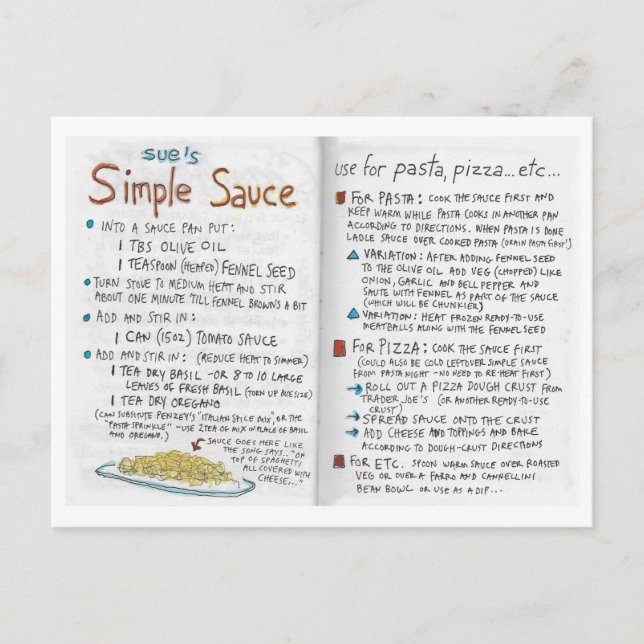 sue's
Simple Sauce
INTO A SAUCE PAN PUT:
1 TBS OLIVE OIL
1 TEASPOON (HEAPED) FENNEL SEED
TURN STOVE TO MEDIUM HEAT AND STIR
ABOUT ONE MINUTE 'TILL FENNEL BROWNS A BIT
ADD AND STIR IN:
1 CAN (15OZ) TOMATO SAUCE
ADD AND STIR IN: (REDUCE HEAT TO SIMMER)
1 TEA DRY BASIL -OR 8 TO 10 LARGE
LEAVES OF FRESH BASIL (TORN UP BITE SIZE)
1 TEA DRY OREGANO
(CAN SUBSTITUTE PENZEY'S "ITALIAN SPICE MIX", OR THE
"PASTA SPRINKLE" - USE 2 TEA OF MIX IN PLACE OF BASIL
AND OREGANO.)
SAUCE GOES HERE LIKE
THE SONG SAYS... "ON
TOP OF SPAGHETTI,
ALL COVERED WITH
CHEESE,..."
use for pasta, pizza... etc...
FOR PASTA: COOK THE SAUCE FIRST AND
KEEP WARM WHILE PASTA COOKS IN ANOTHER PAN
ACCORDING TO DIRECTIONS. WHEN PASTA IS DONE
LADLE SAUCE OVER COOKED PASTA (DRAIN PASTA FIRST!)
VARIATION: AFTER ADDING FENNEL SEED
TO THE OLIVE OIL ADD VEG (CHOPPED) LIKE
ONION, GARLIC AND BELL PEPPER AND
SAUTE WITH FENNEL AS PART OF THE SAUCE
(WHICH WILL BE CHUNKIER)
VARIATION: HEAT FROZEN READY-TO-USE
MEATBALLS ALONG WITH THE FENNEL SEED
FOR PIZZA: COOK THE SAUCE FIRST
(COULD ALSO BE COLD LEFTOVER SIMPLE SAUCE
FROM PASTA NIGHT - NO NEED TO RE-HEAT FIRST)
ROLL OUT A PIZZA DOUGH CRUST FROM
TRADER JOE'S (OR ANOTHER READY-TO-USE
CRUST)
SPREAD SAUCE ONTO THE CRUST
ADD CHEESE AND TOPPINGS AND BAKE
ACCORDING TO DOUGH-CRUST DIRECTIONS
FOR ETC. SPOON WARM SAUCE OVER ROASTED
VEG OR OVER A FARRO AND CANNELLINI
BEAN BOWL OR USE AS A DIP...